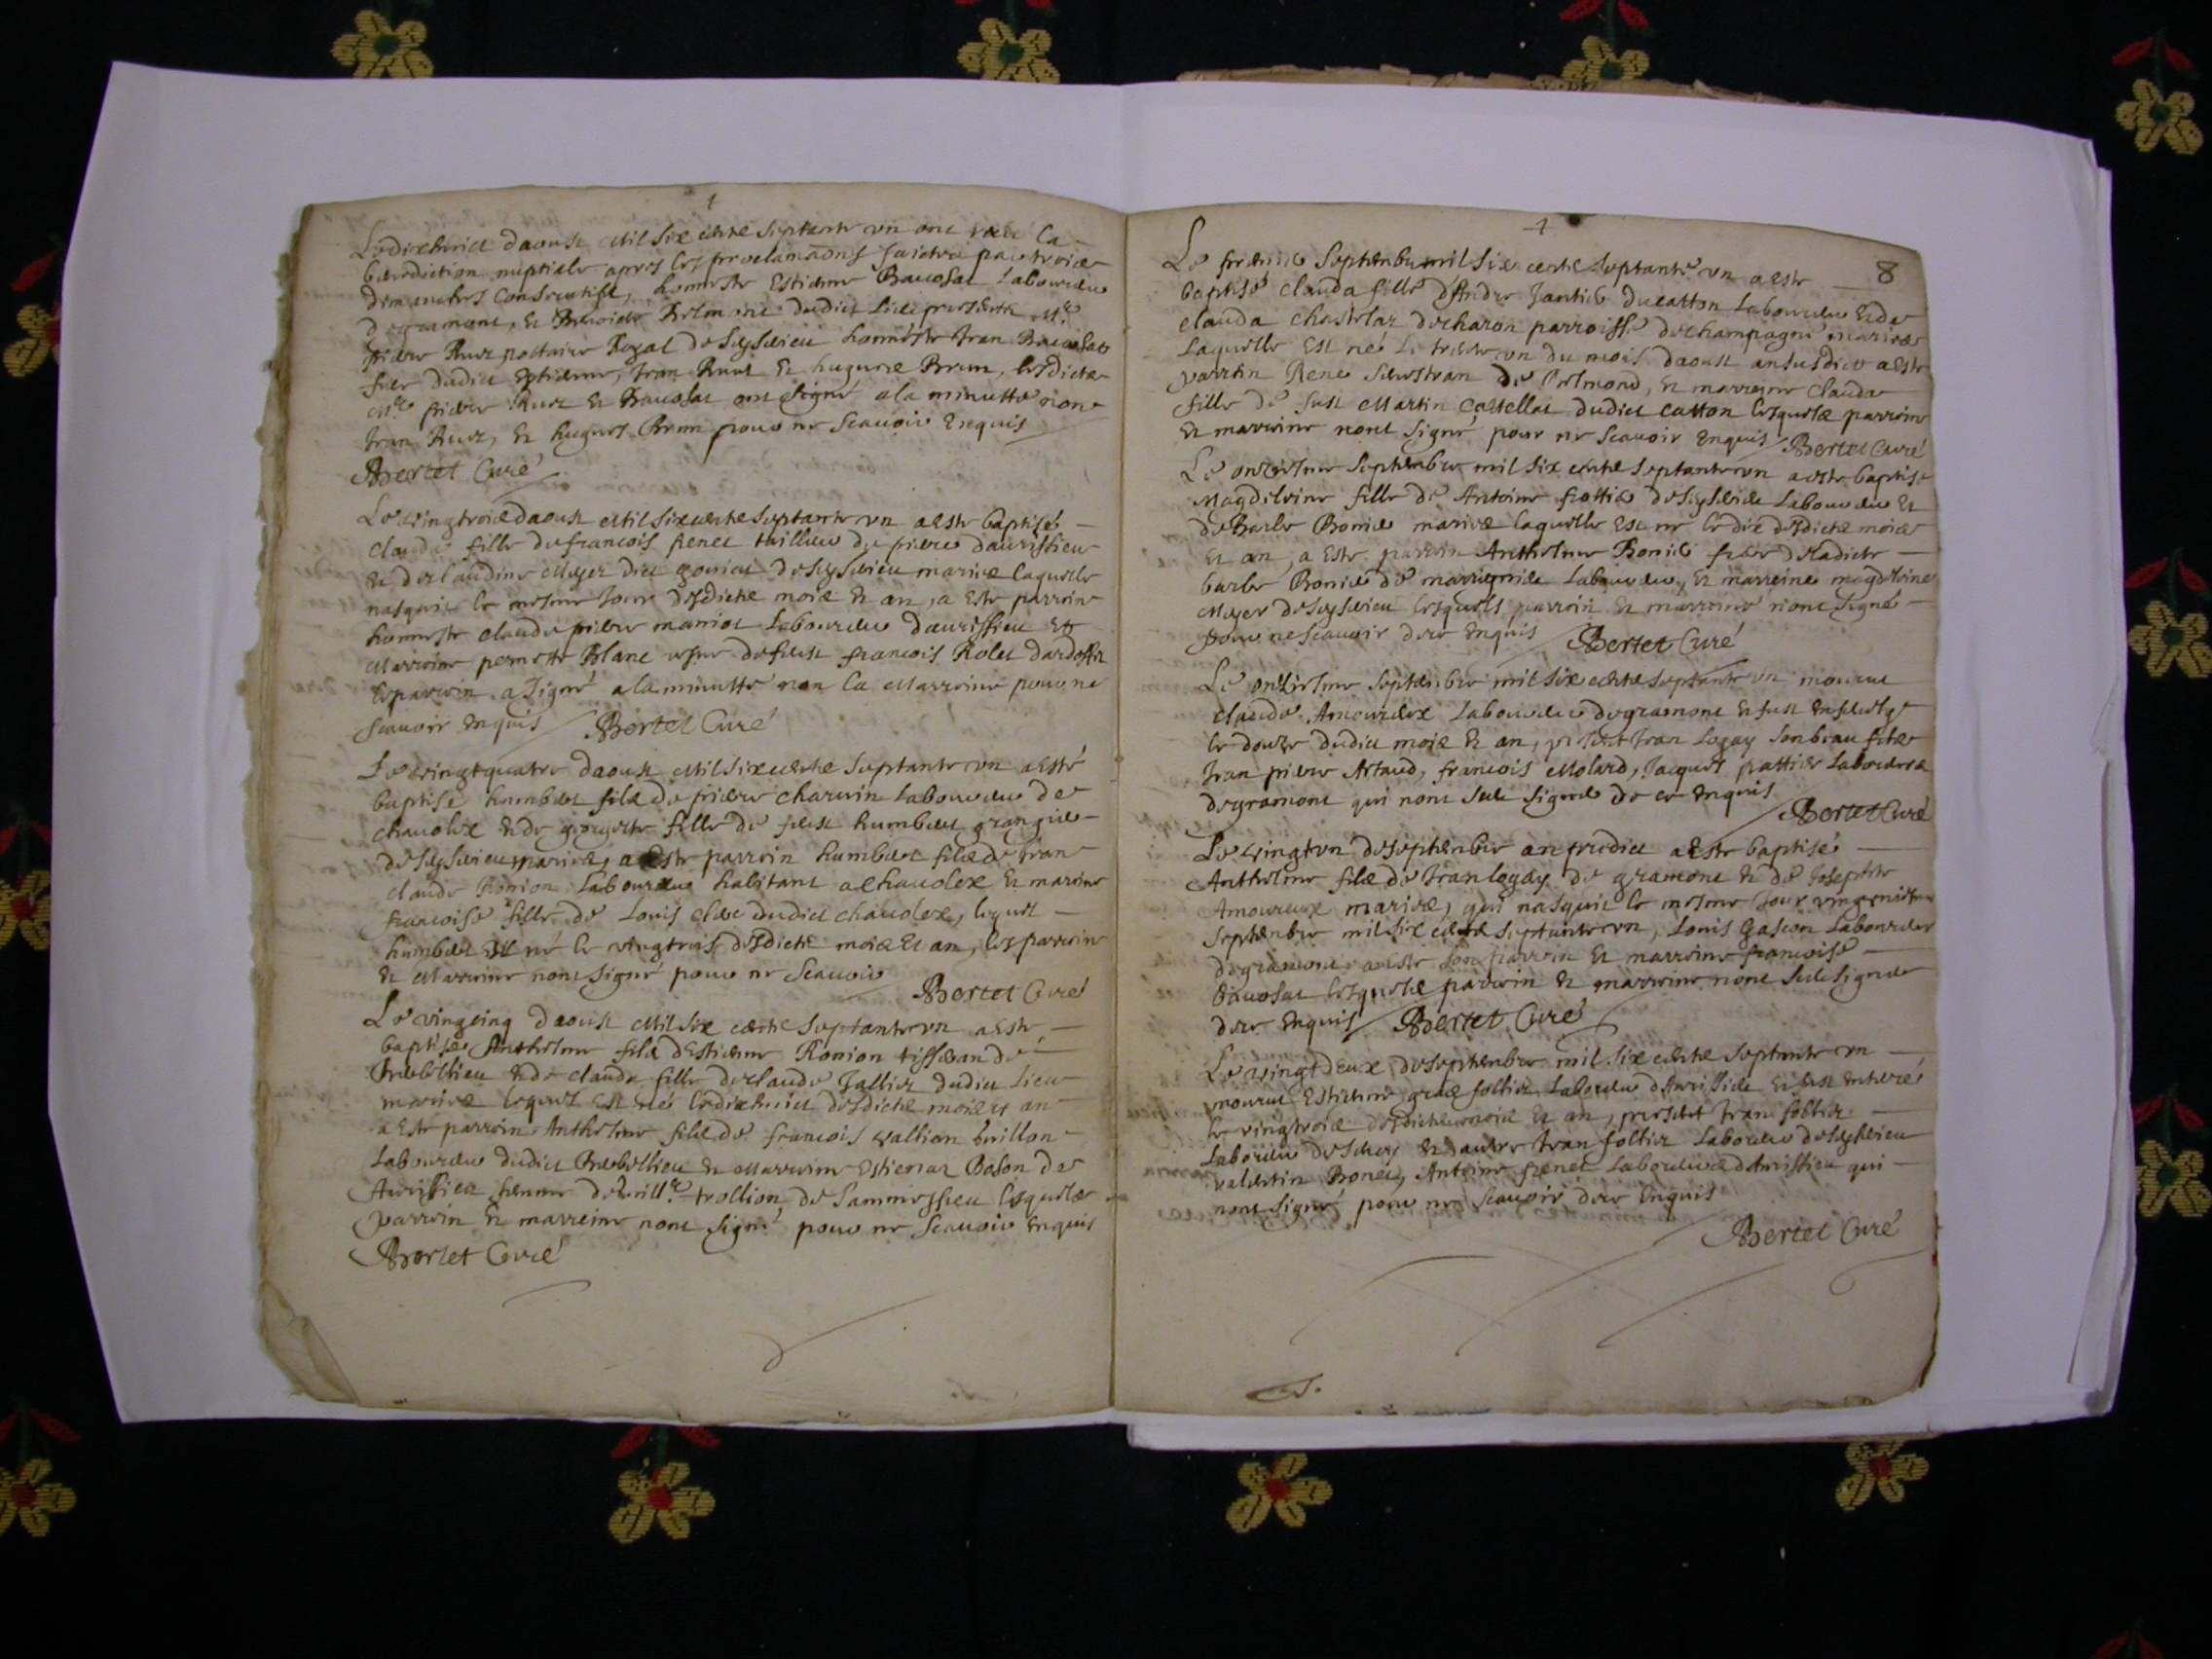 Le dixhuict daoust Mil six cents septante un ont receu la
benediction nuptiale apres les proclamaons faictes par trois
dimanches consecutifs, honneste Estienne Bavosat Laboureur
de gramont, & dudict Lieu presents Me
pierre Rux nottaire Royal de Seyssieu honneste Jean Bavosat
frer dudict Estienne, Jean Ruux & hugues Brun, lesdicts
Me pierre Rux & Bavosat ont signé a la minutte non
Jean Rux, & hugues Brun pour ne scavoir Enquis
Bertet Curé
Le vingtrois daoust Mil six cents septante un a este baptisé
claude fille de francois penet tailleur de pierre daurissieu
& de claudine Meyer dict de Seyssieu mariés laquelle
nasquit le mesme jour desdicts mois & an, a este parrain
honneste claude pierre marriot Laboureur daurissieu &
Marreine pernette Blanc vefve de feust francois Rolet
le parrain a signé a la minutte non la Marreine pour ne
scavoir enquis Bertet Curé
Le vingtquatre daoust Mil six cents septante un a esté
baptisé humbert fils de pierre charvin laboureur de
chavolex & de fille de feust humbert grangier
de Seyssieu mariés, a este parrain humbert fils de Jean
claude Romion Laboureur habitant a chavolex & mareine
francoise fille de Louis clerc dudict chavolex, lequel
humbert est né le vingtrois desdicts mois & an, les parrain
& Marreine nont signé pour ne scavoir
Bertet Curé
Le vingcinq daoust Mil six cents septante un a este
baptisé Anthelme fils destienne Romion tisserand de
& de claude fille de claude Jallier dudict Lieu
mariés lequel est né le dixhuict desdicts mois & an
a este parrain Anthelme fils de francois vallion
Laboureur dudict & Marreine Estiennaz Bason de
femme de trollion de lesquels
parrain & marreine nont signé pour ne scavoir enquis
Bertet Curé
8
Le premier Septembre mil six cents septante un a este
baptisé clauda fille d'Andre Jantil du catton Laboureur & de
clauda chastelaz de charon parroisse de champagne mariés
Laquelle est né le trente un du mois daoust an susdict a este
parrain Rene de Belmond, & marreine clauda
fille de feust Martin Castellat dudict catton lesquels parrain
& marreine nont signé pour ne scavoir enquis Bertet Curé
Le onziesme Septembre mil six cents septante un a este baptisé
Magdeleine fille de Antoine de Seyssieu Laboureur &
de Barbe Bonié mariés laquelle est né le dix desdicts mois
& an, a este parrain Anthelme Bonié frer de ladicte
barbe Bonié de Laboureur, & marreine magdeleine
Meyer de Seyssieu lesquels parrain & marreine nont signé
pour ne scavoir dece enquis Bertet Curé
Le onziesme Septembre mil six cents septante un mourut
claude Amoureux Laboureur de gramont & fust
le douze dudict mois & an, present Jean Legay son beau fils
Jean pierre Artaud, francois Molard, Jacques pattier Laboureurs
de gramont qui nont sceu signer de ce enquis
Bertet Curé
Le vingtun de septembre an predict a este baptisé
Anthelme fils de Jean legay de gramont & de Josephte
Amoureux mariés, qui nasquit le mesme jour
Septembre mil six cents septante un, Louis Gascon Laboureur
de gramont a este son parrain & marreine francoise
Bavosat lesquels parrain & marreine nont sceu signer
dece enquis Bertet Curé
Le vingtdeux de septembre mil six cents septante un
mourut Estienne gras follier Laboureur & fust enterré
le vingtrois desdicts mois & an, present Jean follier
Laboureur de & autre Jean follier Laboureur de Seyssieu
valentin Bonet, Antoine penet Laboureurs daurissieu qui
nont signé pour ne scavoir dece enquis
Bertet Curé